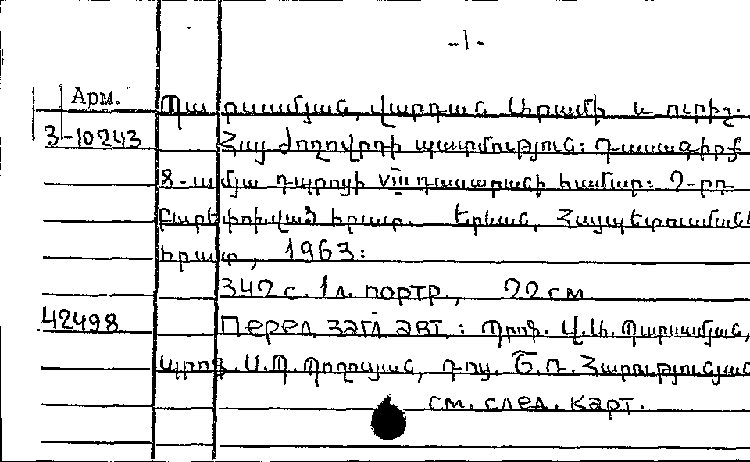 -1-
Арм.
Պարսամյան, Վարդան Արամի և ուրիշ.
3-10243 Հայ ժողովրդի պատմություն: Դասագիրք
8-ամյա դպրոցի VIII դասարանի համար: 2-րդ
բարեփոխված հրատ. Երևան, Հայպետուսման
հրատ, 1963:
342 с. 1 л. портр., 22 см
42498 Перед загл авт.: Պրոֆ. Վ.Ա. Պարսամյան,
պրոֆ. Ս.Պ. Պողոսյան, դոց. Շ.Ռ. Հարությունյան
см. след. карт.